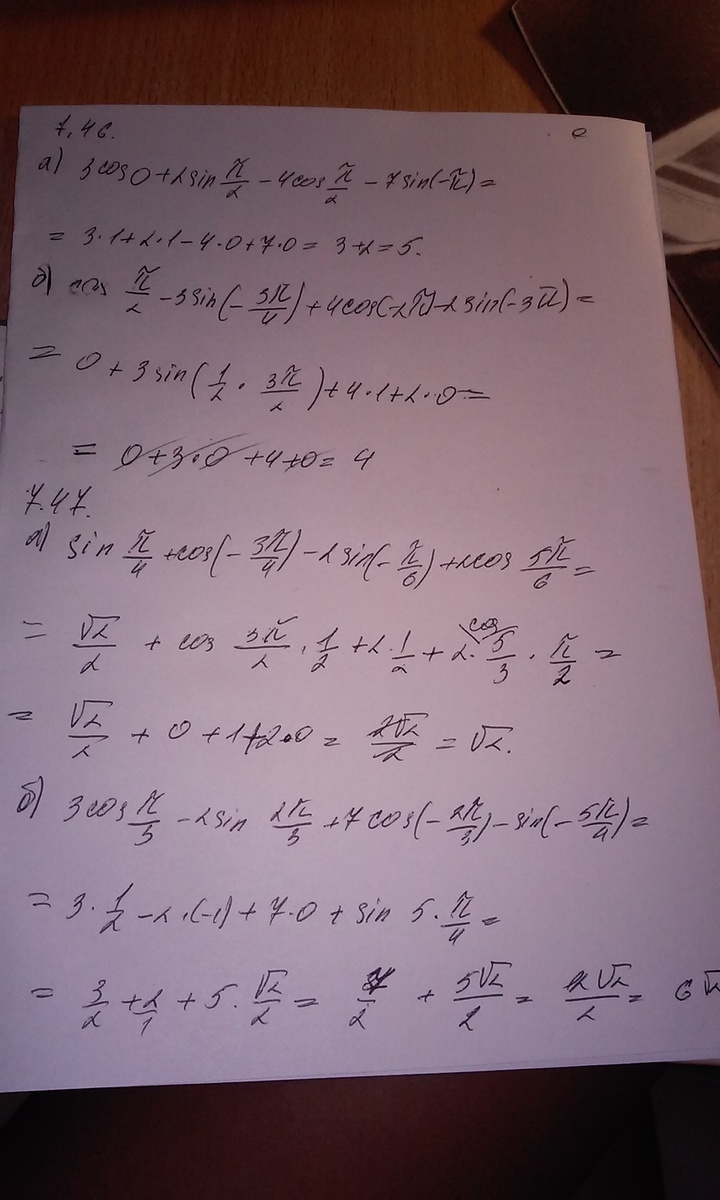 7.46.
а) 3cos0+2sin π/2 − 4cos π/2 − 7sin(−π)=
= 3·1+2·1−4·0+7·0= 3+2=5.
б) cos π/2 −3sin(− 3π/4)+4cos(−2π)−2sin(−3π)=
= 0+3sin(1/2 · 3π/2)+4·1+2·0=
= 0+3·0+4+0= 4
7.47.
а) sin π/4 +cos(− 3π/4)−2sin(− π/6)+2cos 5π/6 =
= √2/2 + cos 3π/2 · 1/2 +2· 1/2 + 2· cos 5/3 · π/2 =
= √2/2 + 0+1+2·0= 2√2/2 = √2.
б) 3cos π/3 −2sin 2π/3 +7cos(− 2π/3)−sin(− 5π/4)=
= 3· 1/2 −2·(−1)+7·0+sin 5· π/4 =
= 3/2 + 2/1 +5· √2/2 = /2 + 5√2/2 = √2/2 = 6√2